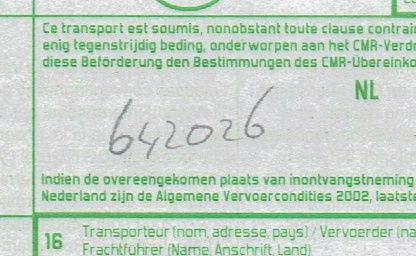 Ce transport est soumis, nonobstant toute clause
enig tegenstrijdig beding, onderworpen aan het
diese Beförderung den Bestimmungen des
NL
642026
Indien de overeengekomen plaats van inontvangstneming
Nederland zijn de Algemene Vervoercondities 2002,
16 Transporteur (nom, adresse, pays) / Vervoerder
Frachtführer (Name, Anschrift, Land)